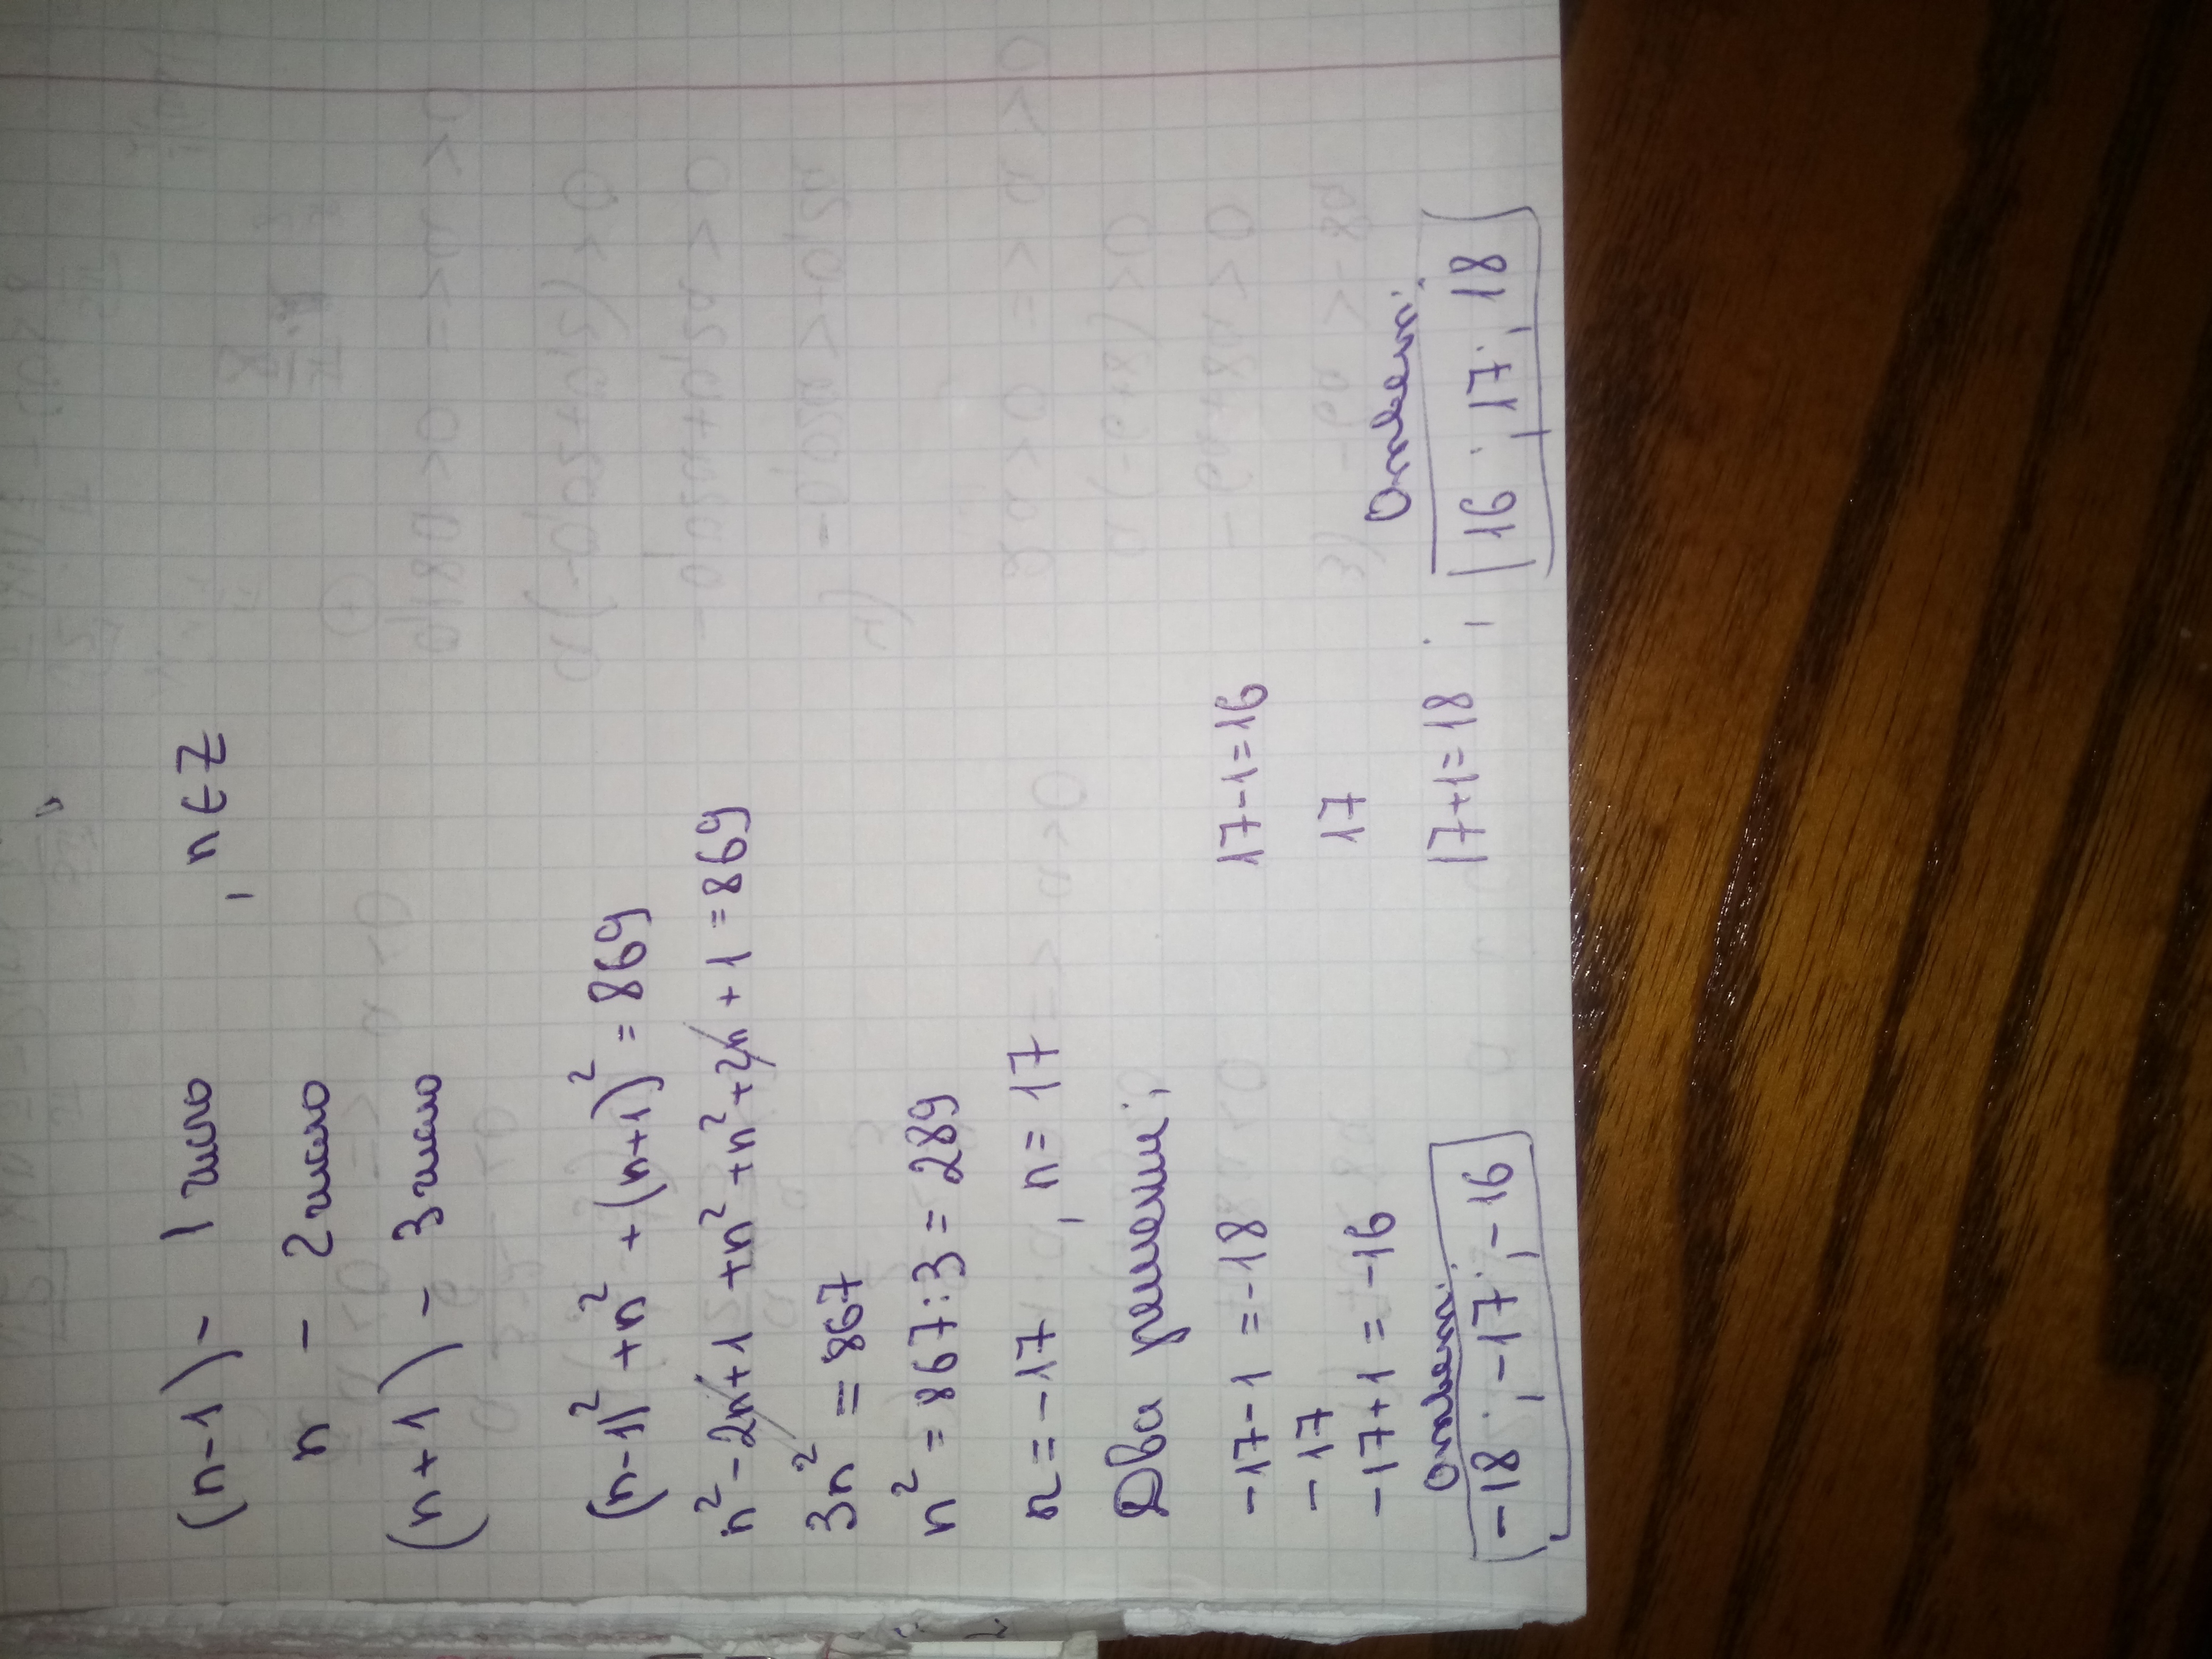 (n-1) - 1 число , n ∈ Z
n - 2 число
(n+1) - 3 число
(n-1)² + n² + (n+1)² = 869
n² - 2n + 1 + n² + n² + 2n + 1 = 869
3n² = 867
n² = 867:3 = 289
n = -17 , n = 17
Два решения:
-17-1 = -18 17-1=16
-17 17
-17+1 = -16 17+1=18
Ответ: Ответ:
-18; -17; -16 ; 16; 17; 18